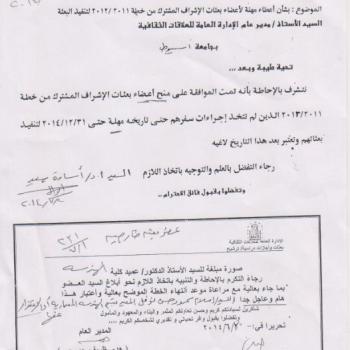 الموضوع : بشأن أعطاء مهلة لأعضاء بعثات الإشراف المشترك من خطة ٢٠١١ / ٢٠١٢ لتنفيذ البعثة
السيد الأستاذ / مدير عام الإدارة العامة للعلاقات الثقافية
بجامعة أسيوط
تحية طيبة وبعد ...
نتشرف بالإحاطة بأنه تمت الموافقة على منح أعضاء بعثات الإشراف المشترك من خطة
٢٠١٢/٢٠١١ الذين لم تتخذ إجراءات سفرهم حتى تاريخه مهلة حتى ٢٠١٤/١٢/٣١ لتنفيذ
بعثاتهم وتعتبر بعد هذا التاريخ لاغيه
رجاء التفضل بالعلم والتوجيه باتخاذ اللازم
وتفضلوا بقبول فائق الاحترام ...
الإدارة العامة للعلاقات الثقافية
صورة مبلغة للسيد الأستاذ الدكتور / عميد كلية
رجاء التكرم بالإحاطة والتنبيه باتخاذ اللازم نحو أبلاغ السيد العضو
بما جاء بعالية مع مراعاة موعد أنتهاء الخطة الموضح بعالية وأعتبار هذا
هام وعاجل جدا
شاكرين لسيادتكم كريم وحسن تعاونكم المثمر والبناء والمعهود والمأمول
وتفضلوا بقبول وافر تحياتي و تقديري لشخصكم الكريم ...
تحريرا في :- ٢٠١٤/٦/
المدير العام